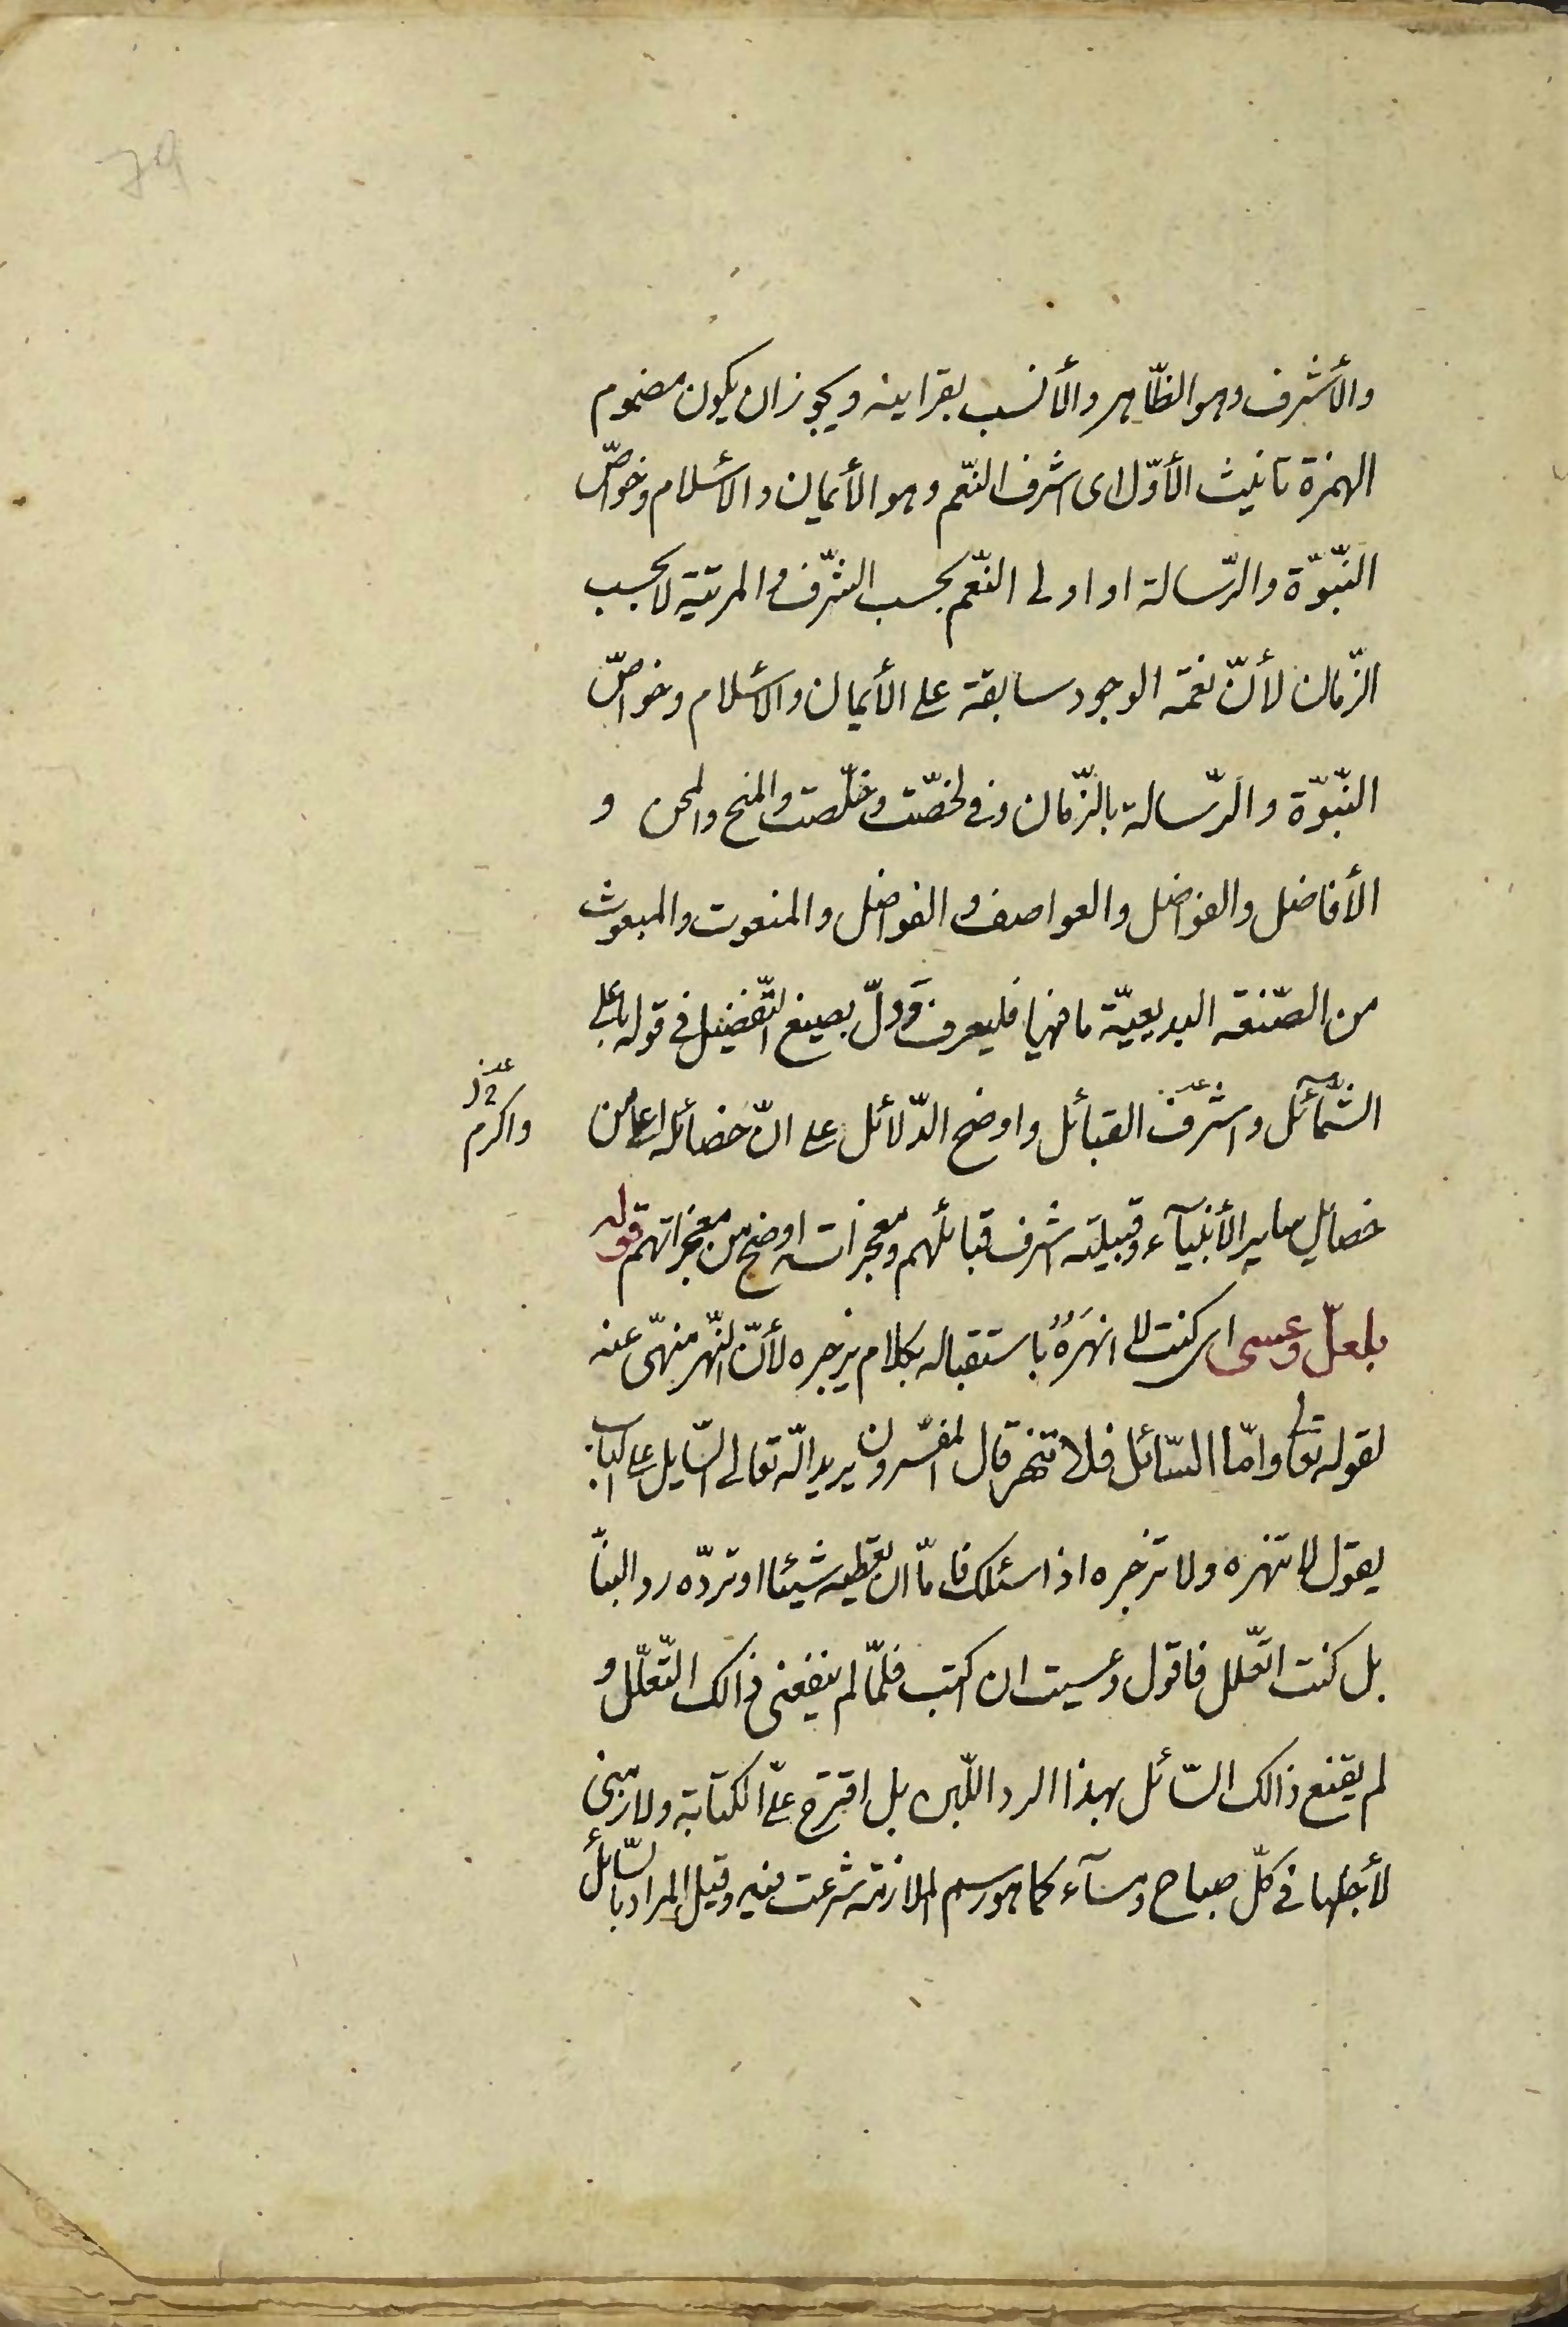 79
والأشرف وهو الظّاهر والأنسب بقراينه ويجوز ان يكون مضموم
الهمزة تانيث الأوّل اى اشرف النّعم وهو الأيمان والأسلام وخواصّ
النّبّوّة والرّسالة او اولى النّعم بحسب الشّرف والمرتبة لا بحسب
الزّمان لأنّ نعمة الوجود سابقة على الأيمان والأسلام وخواصّ
النّبّوّة والرّسالة بالزّمان وفى لخصّت وخلّصت والمنح والمحن و
الأفاضل والفواضل والعواصف والفواضل والمنعوت والمبعوث
من الصّنعة البديعيّة ما فيها فليعرف وَدلّ بصيغ التّفضيل فى قوله باعلى
الشّمآئل واشرف القبائل واوضح الدّلائل على انّ خصائله اعلى من
واكرم
خصايل ساير الأنبيآء وقبيلته اشرف قبائلهم ومعجزاته اوضح من معجزاتهم قوله
بلعلّ وعسى اى كنت لا انهرَهُ باستقباله بكلام يزجره لأنّ النّهر منهّى عنه
لقوله تعالى وامّا السّائل فلا تنهر قال المفسّرون يريد اللّه تعالى السّايل على الباب
يقول لا تنهره ولا تزجره اذا سئلك فامّا ان تعطيه شيئا او تردّه ردا لينّا
بل كنت اتعّلل فاقول وعسيت ان اكتب فلمّا لم ينفعنى ذالك التّعلّل و
لم يقنع ذالك السّائل بهذا الرد اللّين بل اقترح علىّ الكتابة ولازمنى
لأجلها فى كلّ صباح ومسآء كما هو رسم الملازمة شرعت فيه وقيل المراد بالسّائل